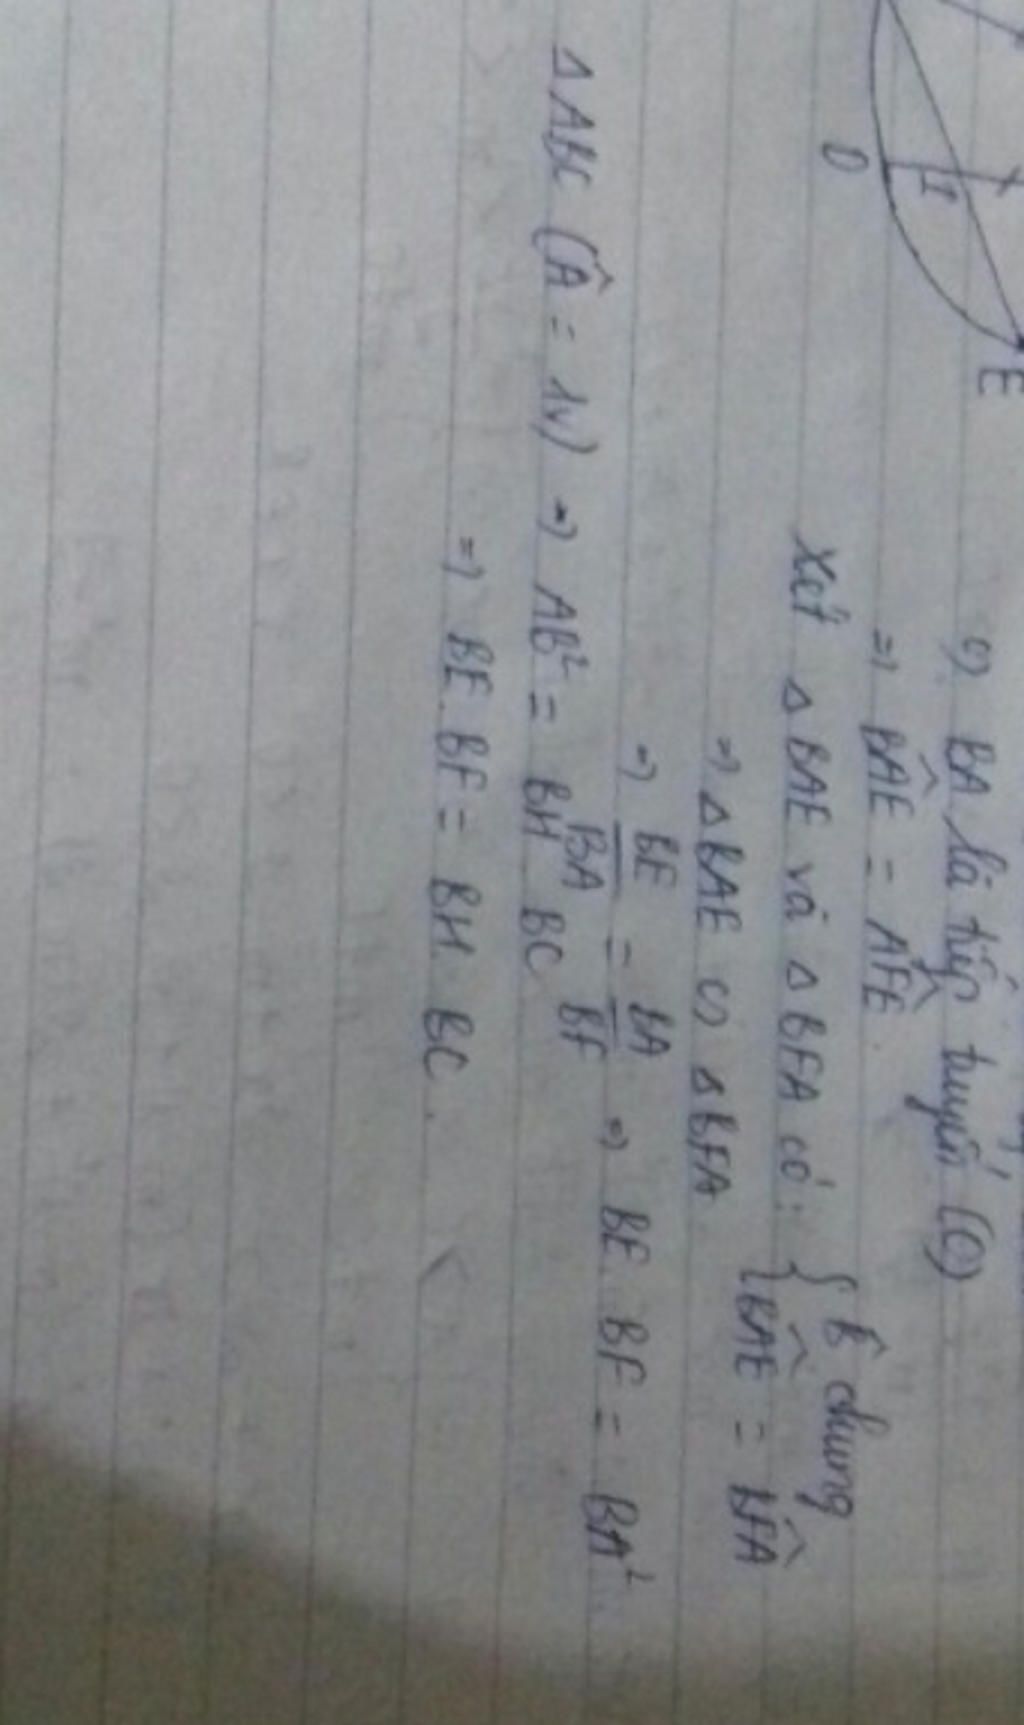 E
I
D
c) BA là tiếp tuyến (O)
=> BÂE = AF̂E
Xét △BAE và △BFA có: { B̂ chung
BÂE = BF̂A
=> △BAE ∽ △BFA
=> BE/BA = BA/BF => BE. BF = BA²
△ABC (Â = 1v) => AB² = BH. BC
=> BE. BF = BH. BC.